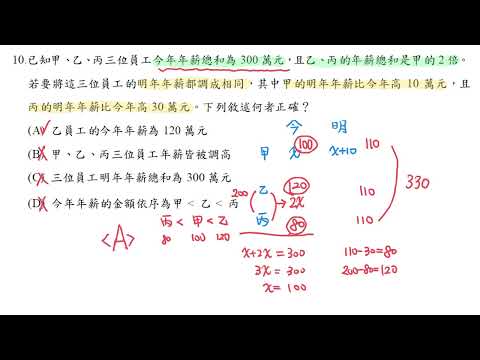 10.已知甲、乙、丙三位員工今年年薪總和為 300 萬元,且乙、丙的年薪總和是甲的 2 倍。
若要將這三位員工的明年年薪都調成相同,其中甲的明年年薪比今年高 10 萬元,且
丙的明年年薪比今年高 30 萬元。下列敘述何者正確?
(A) 乙員工的今年年薪為 120 萬元
(B) 甲、乙、丙三位員工年薪皆被調高
(C) 三位員工明年年薪總和為 300 萬元
(D) 今年年薪的金額依序為甲 < 乙 < 丙
今 明
甲 x 100 x+10 110
200 乙 120 2x 110
丙 80 110
330
丙 < 甲 < 乙
80 100 120
<A>
x+2x=300
3x=300
x=100
110-30=80
200-80=120